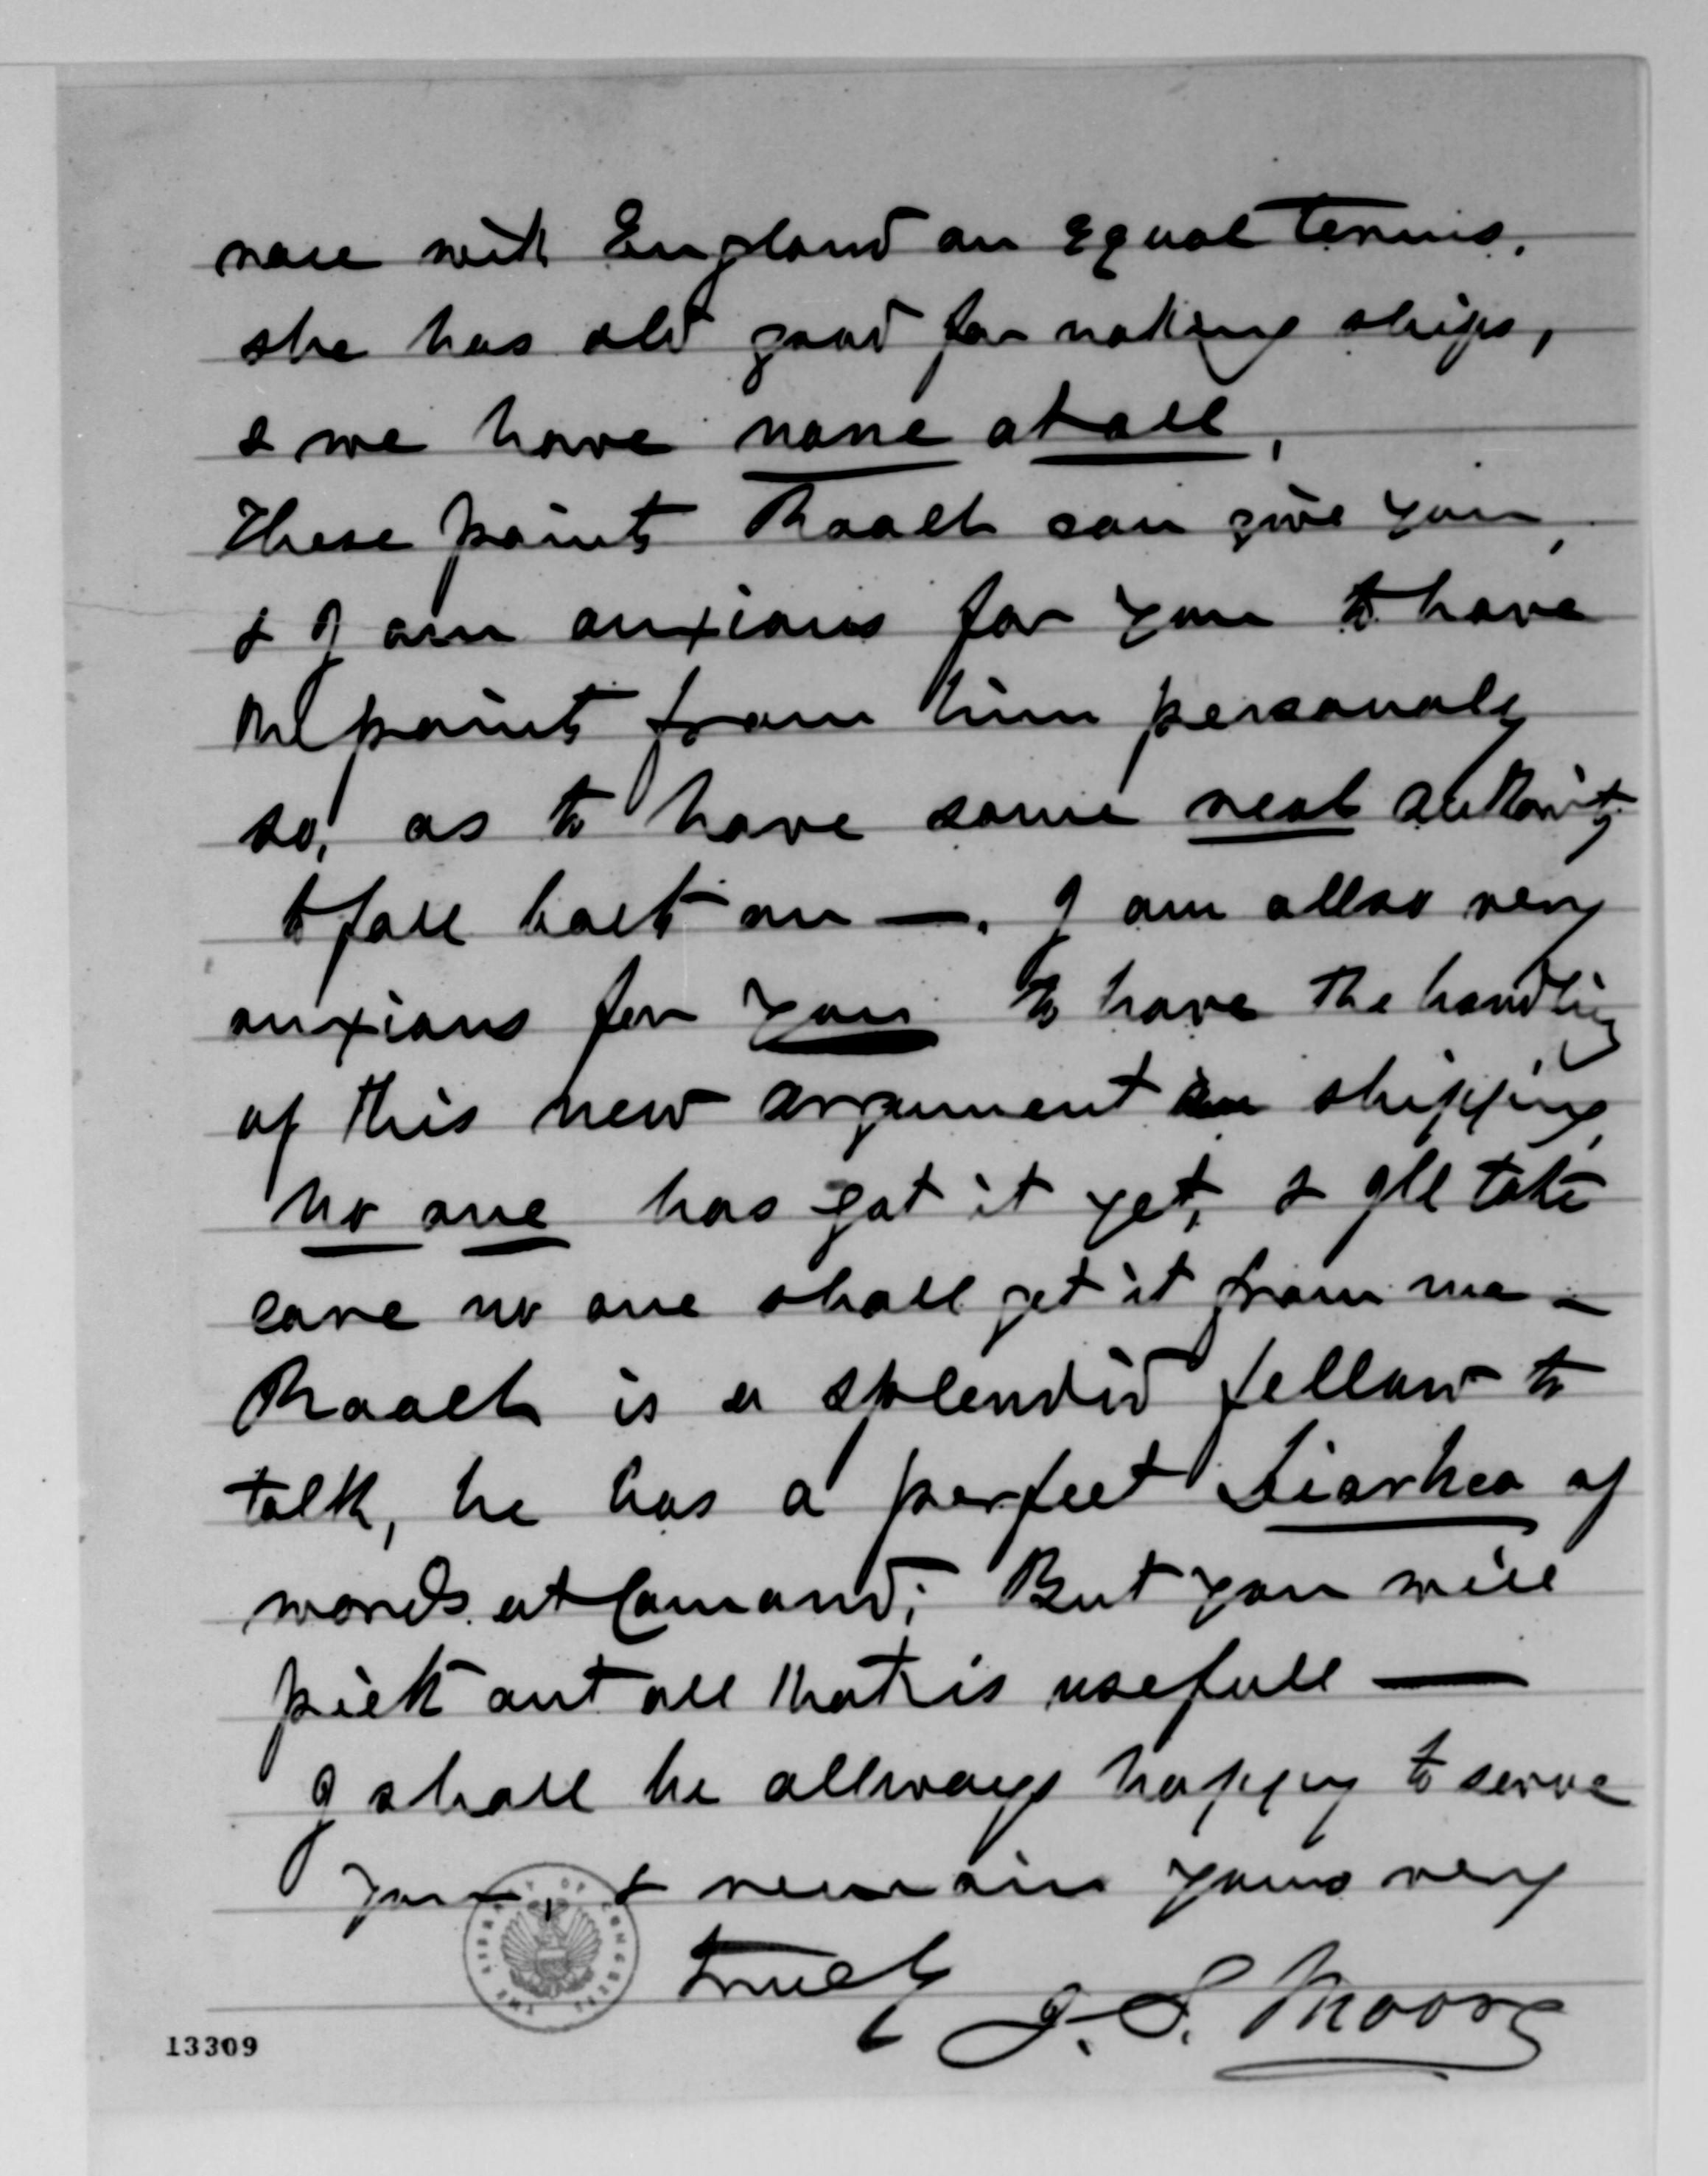 race with England on Equal terms.
she has old good for making ships,
& we have none at all,
These points Roach can give you,
& I am anxious for you to have
the points from him personaly
so, as to have some real authority
to fall back on —. I am allso very
anxious for you to have the handling
of this new argument in shipping,
No one has got it yet, & I'll take
care no one shall get it from me —
Roach is a splendid fellow to
talk, he has a perfect Diarhea of
words at Comand; But you will
pick out all that is usefull —
I shall be allways happy to serve
you & remain yours very
truely J. S. Moore
THE LIBRARY OF CONGRESS
13309